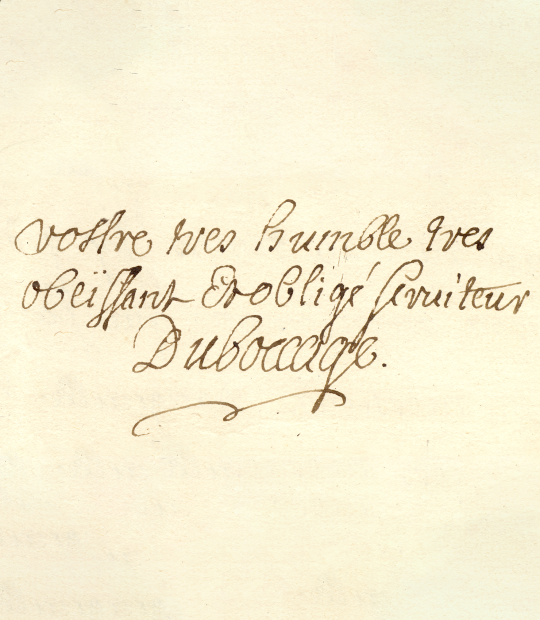 vostre tres humble tres
obeïssant Et obligé seruiteur
Duboccage.